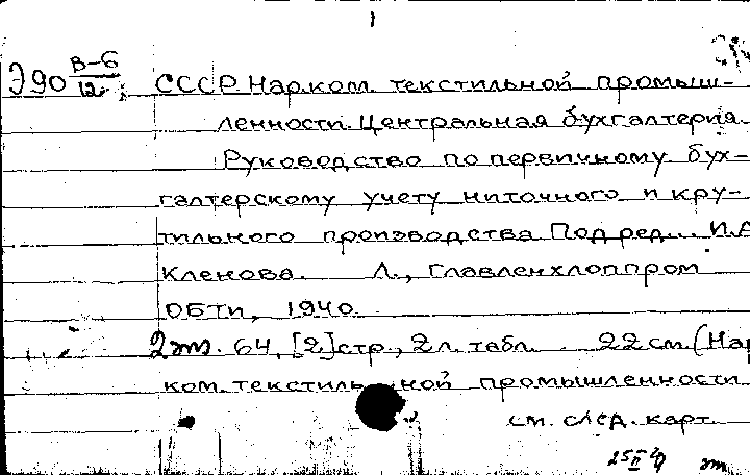 1
Э90 В-6/12 СССР. Нарком. текстильной промыш-
ленности. Центральная бухгалтерия.
Руководство по первичному бух-
галтерскому учету ниточного и кру-
тильного производства. Под ред. И.А.
Кленова. Л., Главленхлоппром
ОБТИ, 1940.
2 т. 64, [2] стр., 2 л. табл. 22 см. (Нар
ком. текстильной промышленности
см. след. карт.